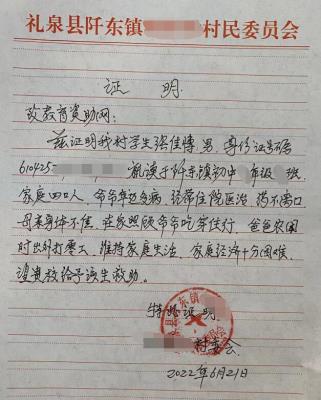 礼泉县阡东镇 村民委员会
证 明
致教育资助网:
兹证明我村学生张佳博,男,身份证号码
610425 就读于阡东镇初中 年级 班
家庭四口人,爷爷年迈多病,经常住院医治,药不离口
母亲身体不佳,在家照顾爷爷吃穿住行,爸爸农闲
时出外打零工,维持家庭生活,家庭经济十分困难,
望贵校给予该生救助。
特此证明
村委会
2022年6月21日